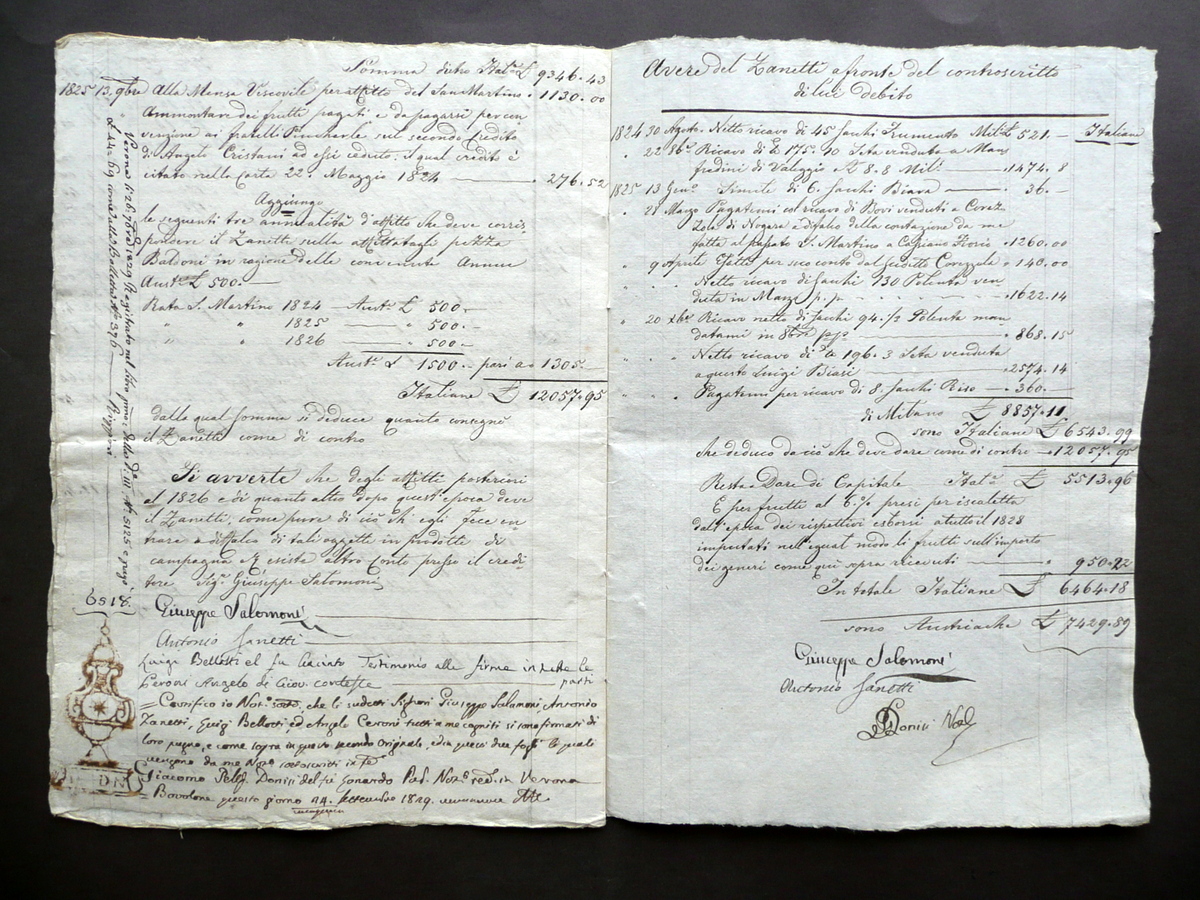 Somma dietro Ital.e £ 9346.43
1825 13 9bre Alla Mensa Vescovile per affitto del San Martino . 1130.00
Ammontare dei frutti pagati e da pagarsi per con
venzione ai fratelli Pincherle sul secondo Credito
di Angelo Cristani ad essi ceduto, il qual credito è
citato nella Carta 22 Maggio 1824 . 276.52
Aggiungo
le seguenti tre annualità d'affitto che deve corris
pondere il Zanetti sulla affittatagli pezza
Baldoni in ragione delle convenute Annue
Aust.e £ 500.-
Rata S. Martino 1824 - Aust.e £ 500.-
" " 1825 - " 500.-
" " 1826 - " 500.-
Aust.e £ 1500.- pari a 1305.-
Italiane £ 12057.95
dalla qual somma si deduce quanto consegnò
il Zanetti come di contro
Si avverte che degli affitti posteriori
al 1826 e di quanto altro dopo quest'epoca deve
il Zanetti, come pure di ciò ch'egli fece en
trare a diffalco di tali oggetti in prodotte di
campagna esiste altro Conto presso il credi
tore Sig.r Giuseppe Salomoni
Giuseppe Salomoni
Antonio Zanetti
Luigi Bellotti del fu Giacinto Testimonio alle firme in tutte le parti
Ceroni Angelo di Giov.
Certifico io Not.o sott.o che li sudetti Signori Giuseppe Salomoni, Antonio
Zanetti, Luigi Bellotti, ed Angelo Ceroni tutti a me cogniti si sono firmati di
loro pugno, e come sopra in questo secondo Originale, ed in questi due fogli le quali
vengono da me Not.o sottoscritti in fe
Giacomo Donisi del fu Leonardo Not.o resid. in Verona
Bovolone questo giorno 14 settembre 1829
Verona
6518
DN
Avere del Zanetti a fronte del controscritto
di lui debito
Italiane
1824 30 Agosto Netto ricavo di 45 Sacchi Frumento Mil.i £ 521.-
" 22 8b.e Ricavo di £ 175.10 Seta venduta a Man
fredini di Valeggio a £ 8.8 Mil.i . 1474.8
1825 13 Gen.o Simile di 6 Sacchi Biava . 36.-
" 28 Marzo Pagatemi col ricavo di Bovi venduti a Corez
zola di Nogara e diffalco della contazione da me
fatta al passato S. Martino a Cipiano Florio . 1260.00
" 9 Aprile Fatto per suo conto dal suddetto Corezzola . 140.00
" " Netto ricavo di Sacchi 130 Polenta ven
duta in Marzo p.p. . 1622.14
" 20 Xbre Ricavo netto di Sacchi 94 1/2 Polenta man
datami in 8bre p.p. . 868.15
" " Netto ricavo di £ 196.3 Seta venduta
a questo Luigi Biasi . 2574.14
" " Pagatemi per ricavo di 8 Sacchi Riso . 360.-
di Milano £ 8857.11
sono Italiane £ 6543.99
che deduco da ciò che deve dare come di contro 12057.95
Resta a Dare di Capitale Ital.e £ 5513.96
E per frutti al 6% presi per iscaletta
dall'epoca dei rispettivi esborsi a tutto il 1828
imputati nell'egual modo li frutti sull'importo
dei generi come qui sopra ricevuti . 950.22
In totale Italiane £ 6464.18
sono Austriache £ 7429.89
Giuseppe Salomoni
Antonio Zanetti
Donisi